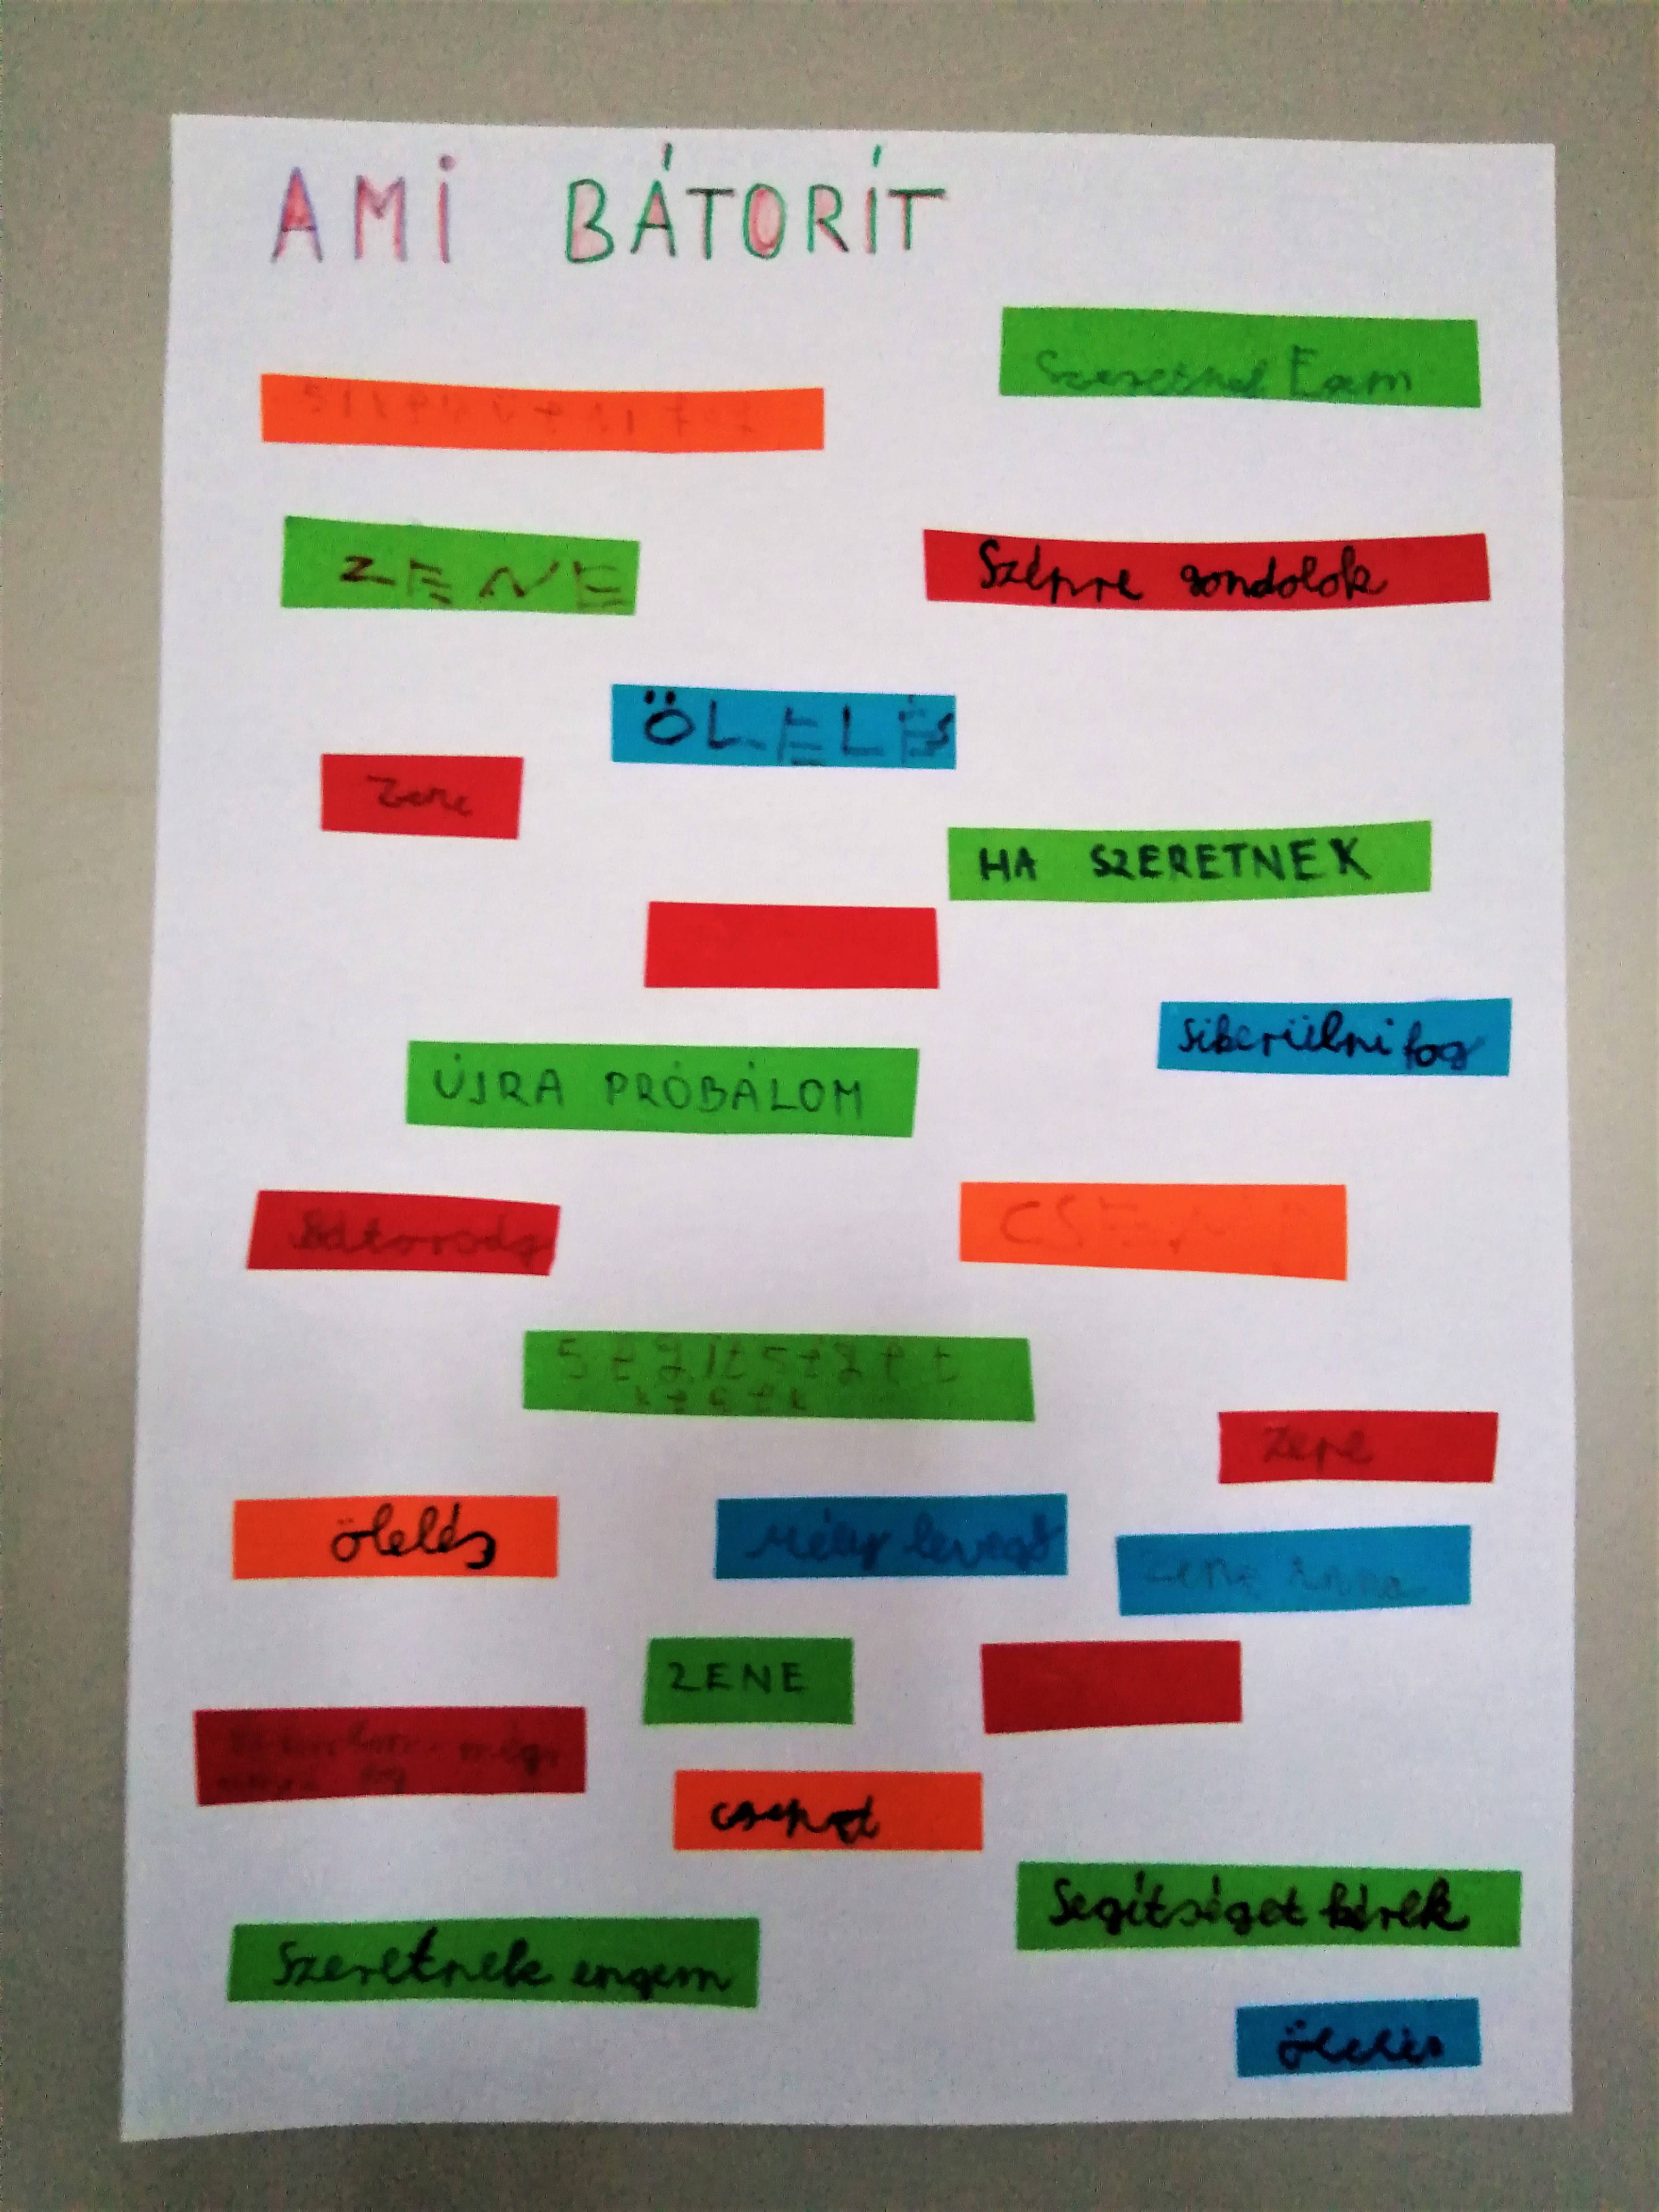 AMI BÁTORÍT
ZENE
Szépre gondolok
ÖLELÉS
Zene
HA SZERETNEK
sikerülni fog
ÚJRA PRÓBÁLOM
Bátorodg
CSEN
segítséget
kérek
Zene
ölelés
Mély levegő
Zene
ZENE
csepet
Segítséget kérek
Szeretnek engem
ölelés